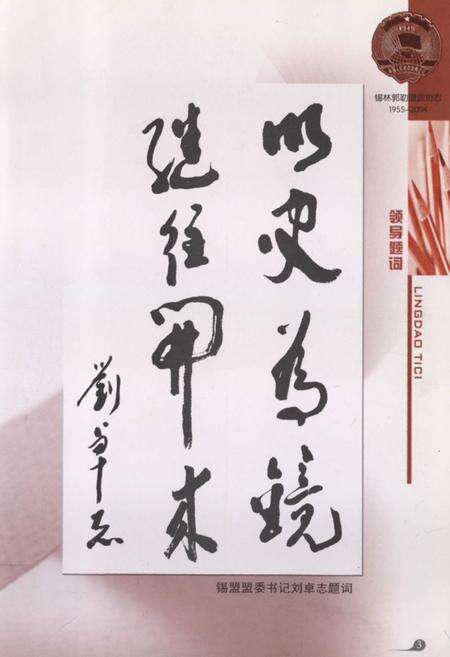 锡林郭勒盟政协志
1955-2004
领导题词
LINGDAO TICI
以史为镜
继往開来
劉卓志
锡盟盟委书记刘卓志题词
3